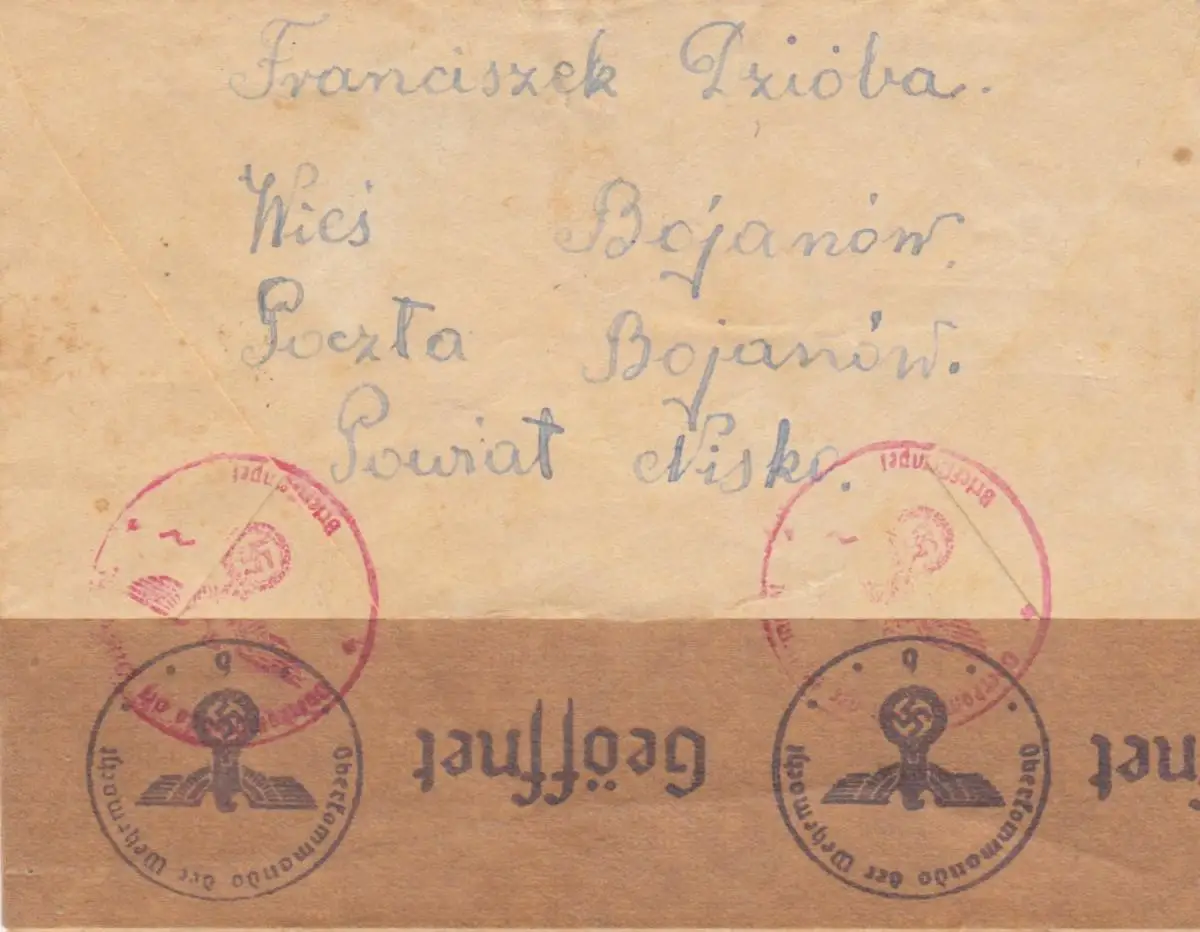 Franciszek Dzióba.
Wieś Bojanów.
Poczta Bojanów.
Powiat Nisko.
Briefstempel
Briefstempel
b
Oberkommando der Wehrmacht
Geöffnet
b
Oberkommando der Wehrmacht
net